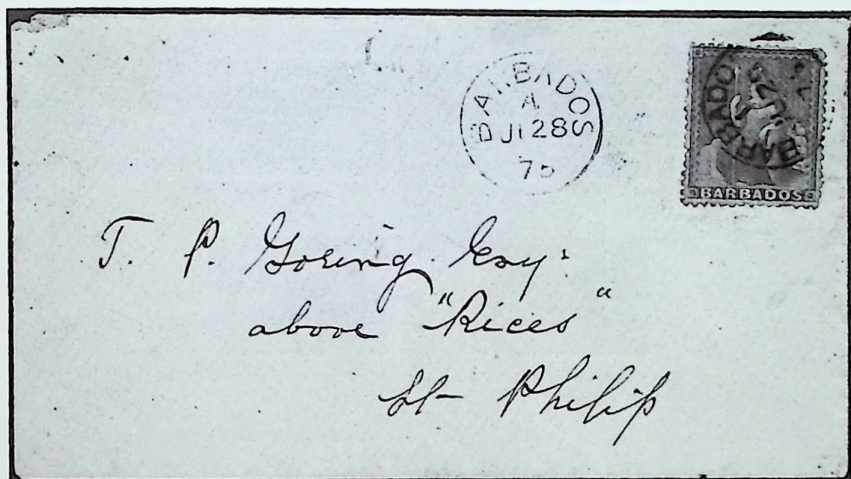 BARBADOS
A
JY 28
75
BARBADOS
BARBADOS
T. P. Goring Esq:
above "Rices"
St Philip